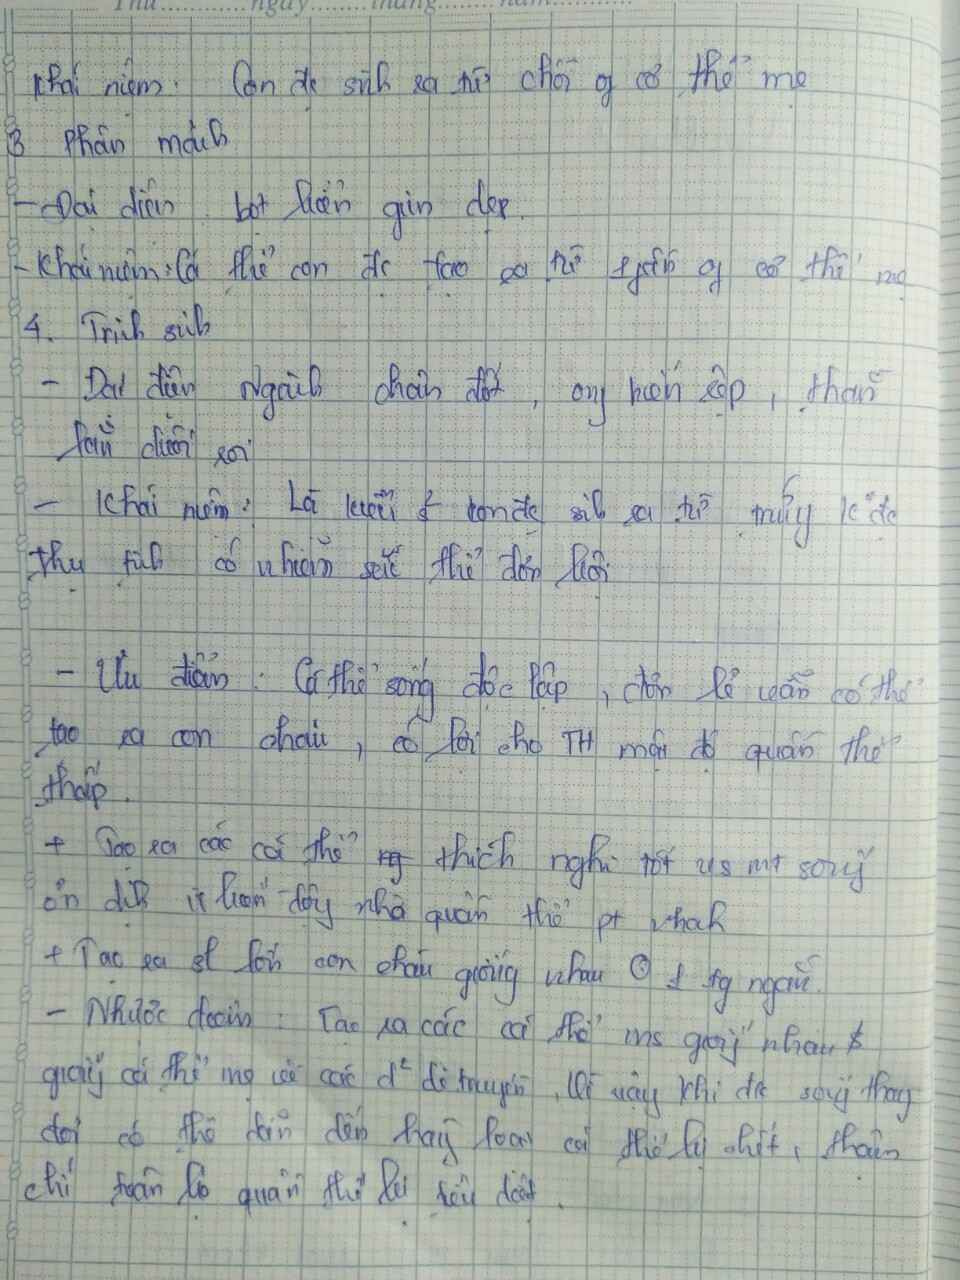 Thứ ngày tháng năm
Khái niệm: Con đc sinh ra từ chồi of cơ thể mẹ
3 Phân mảnh
- Đại diện bọt biển giun dẹp.
- Khái niệm: Cơ thể con đc tạo ra từ of cơ thể mẹ
4. Trinh sinh
- Đại diện Ngành chân đốt, ong kiến rệp, thằn
lằn
- Khái niệm: Là kiểu con đc sinh ra từ trứng k đc
thụ tinh có nhiễm sắc thể đơn bội
- Ưu điểm: Cơ thể sống độc lập, đơn lẻ vẫn có thể
tạo ra con cháu, có lợi cho TH mật độ quần thể
thấp.
+ Tạo ra các cá thể thích nghi tốt vs mt sống
ổn định ít biến động nhờ quần thể pt nhah
+ Tạo ra sl lớn con cháu giống nhau 1 tg ngắn.
- Nhược điểm: Tạo ra các cá thể ms giống nhau &
giống cá thể mẹ về các đ² di truyền. Vì vậy khi đk sống thay
đổi có thể dẫn đến hàng loạt cá thể bị chết, thậm
chí toàn bộ quần thể bị tiêu diệt.